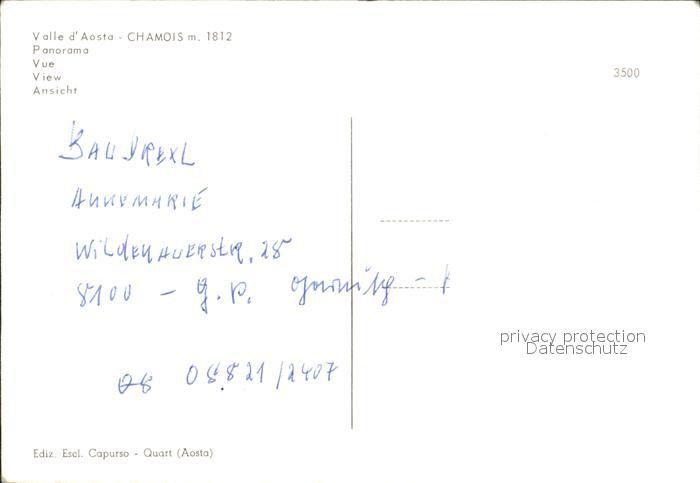 Valle d'Aosta - CHAMOIS m. 1812
Panorama
Vue
View
Ansicht
3500
BAUDREXL
ANNEMARIE
WILDENAUERSTR. 25
8100 - G. P.
privacy protection
Datenschutz
08821/2407
Ediz. Escl. Capurso - Quart (Aosta)